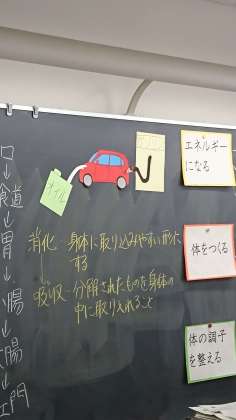 口
↓
食道
↓
胃
↓
腸
↓
腸
↓
肛門
オイル
消化 - 身体に取り込みやすい形に
する
↓
吸収 - 分解されたものを身体の
中に取り入れること
エネルギー
になる
体をつくる
体の調子
を整える